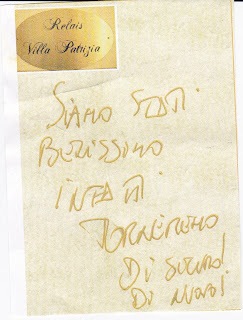 Relais
Villa Patrizia
SIAMO STATI
BENISSIMO
INFATTI
TORNEREMO
DI SICURO!
DI NUOVO!